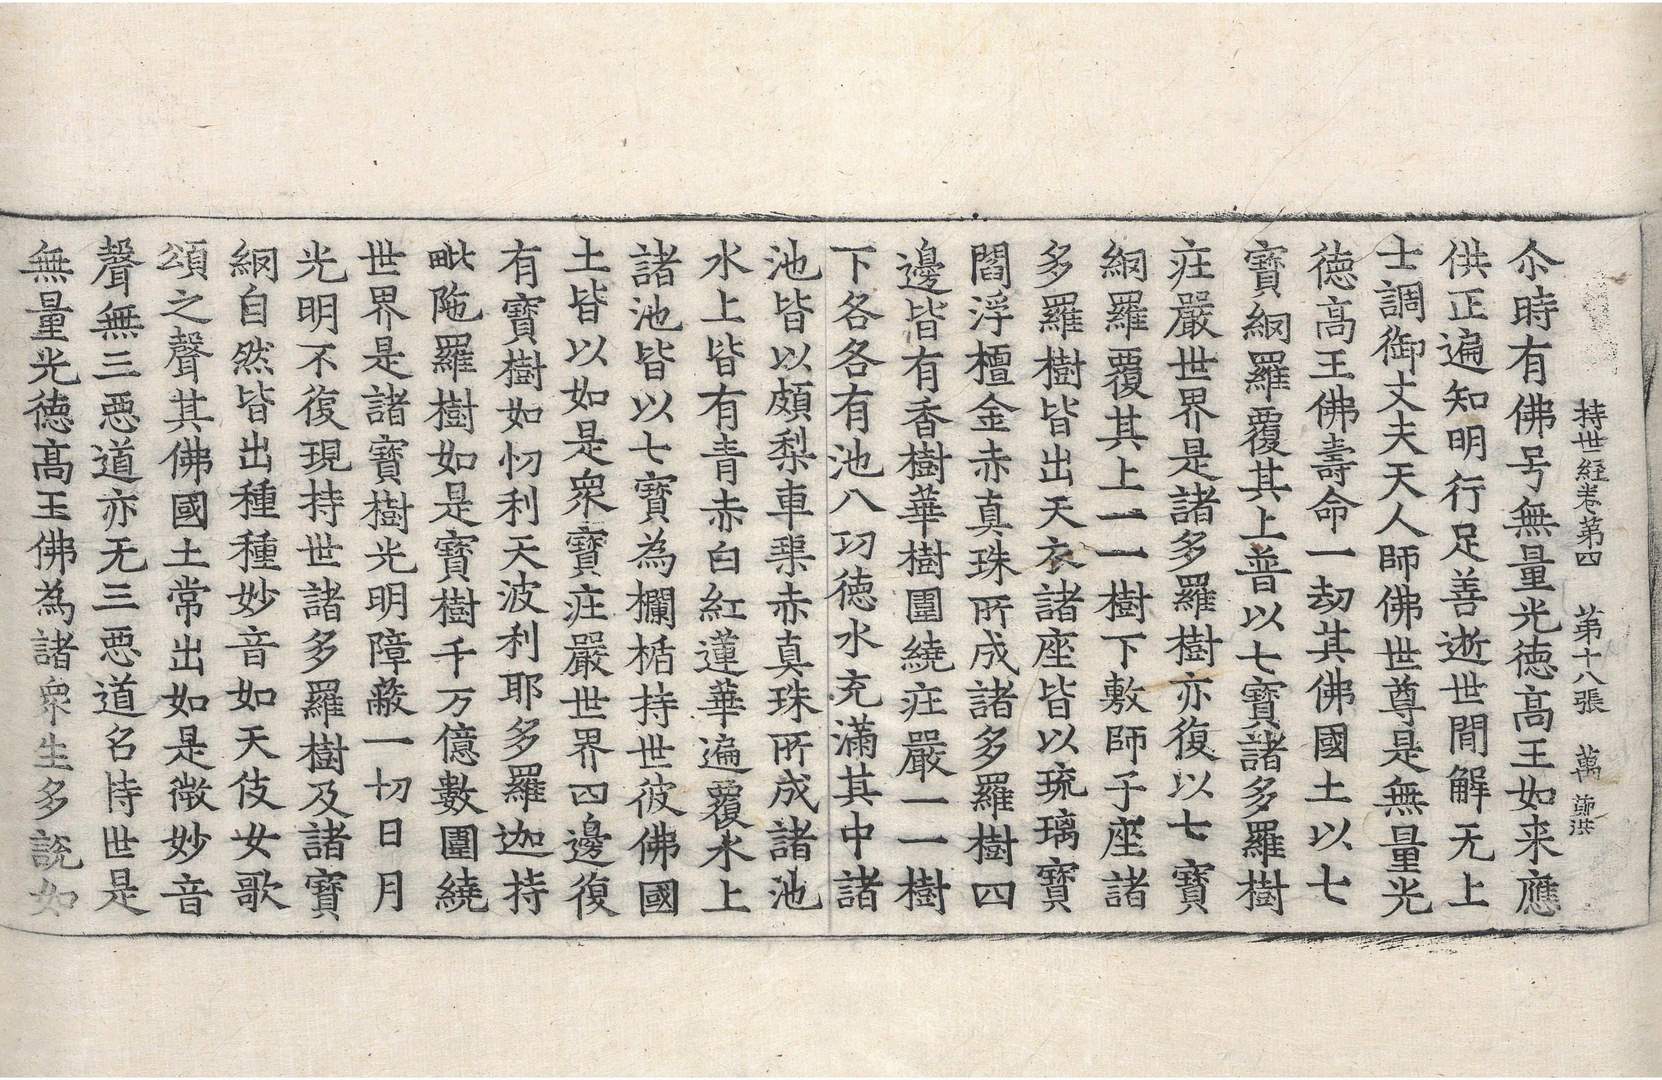 持世経卷第四 第十八張 萬 鄭洪
尒時有佛号無量光德高王如来應
供正遍知明行足善逝世間解无上
士調御丈夫天人師佛世尊是無量光
德高王佛壽命一劫其佛國土以七
寶網羅覆其上普以七寶諸多羅樹
庄嚴世界是諸多羅樹亦復以七寶
網羅覆其上一一樹下敷師子座諸
多羅樹皆出天衣諸座皆以琉璃寶
閻浮檀金赤真珠所成諸多羅樹四
邊皆有香樹華樹圍繞庄嚴一一樹
下各各有池八功德水充滿其中諸
池皆以頗梨車𤦲赤真珠所成諸池
水上皆有青赤白紅蓮華遍覆水上
諸池皆以七寶為欄楯持世彼佛國
土皆以如是衆寶庄嚴世界四邊復
有寶樹如忉利天波利耶多羅迦持
毗陁羅樹如是寶樹千万億數圍繞
世界是諸寶樹光明障蔽一切日月
光明不復現持世諸多羅樹及諸寶
網自然皆出種種妙音如天伎女歌
頌之聲其佛國土常出如是微妙音
聲無三惡道亦无三惡道名持世是
無量光德高王佛為諸衆生多說如